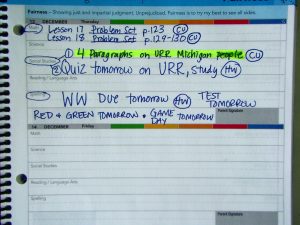 Fairness - Showing just and impartial judgment. Unprejudiced. Fairness is to try my best to see all sides.
12 DECEMBER Thursday
Math
Lesson 17 Problem Set p.123 CU
Lesson 18 Problem Set p.129-130 CU
Science
① 4 Paragraphs on URR Michigan people CU
Social Studies
② Quiz tomorrow on URR, study HW
Reading / Language Arts
WW Due tomorrow HW TEST TOMORROW
RED & GREEN TOMORROW • GAME DAY TOMORROW
Parent Signature
DECEMBER Friday
Math
Science
Social Studies
Reading / Language Arts
Parent Signature